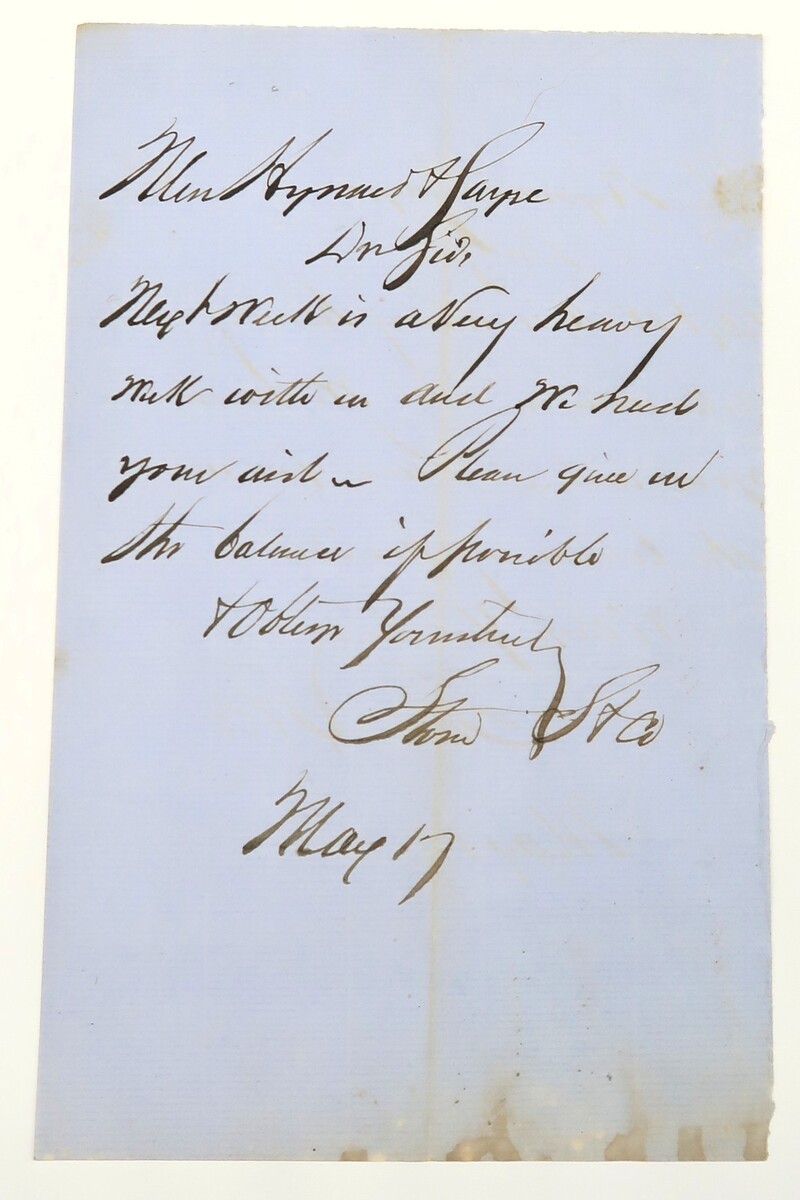 Mess Hynard & Sarpe
Dr Sir,
Next Week is a Very heavy
Week with us and We need
your aid – Please give us
the balance if possible
& Oblige Yours truly
Stone S & Co
May 17